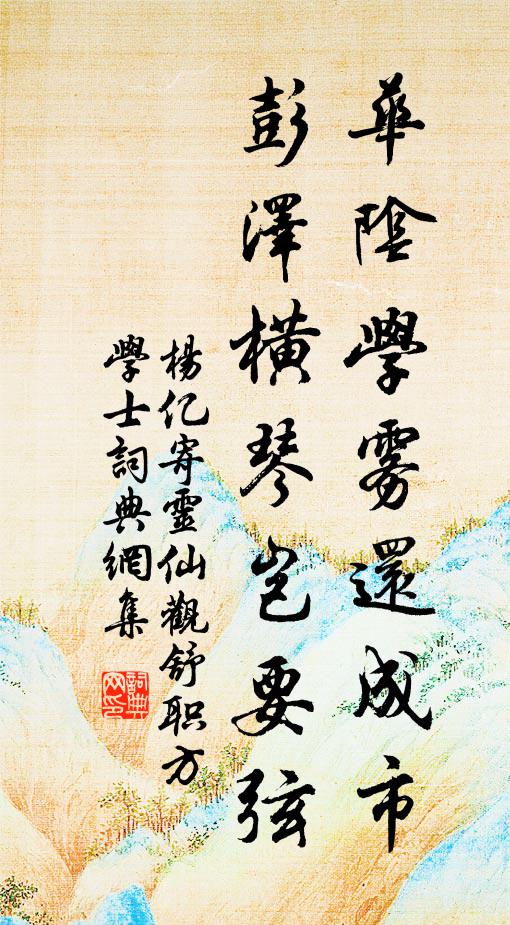 華陰學雾還成市
彭澤橫琴岂要弦
楊亿寄靈仙觀舒职方
學士詞典網集
詞典
网印